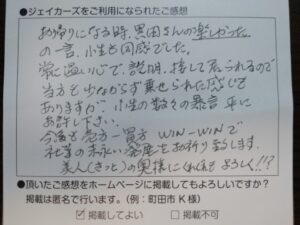 ●ジェイカーズをご利用になられたご感想
お帰りになる時、黒田さんの楽しかった
の一言、小生も同感でした。
常に遊び心で、説明、接して居られるので
当方も少なからず乗せられた感じも
ありますが、小生の数々の暴言 平に
お許し下さい。
今后も売方-買方 WIN-WINで
社業の末永い発展をお祈り致します。
美人(きっと)の奥様にくれぐれもよろしく!!?
●頂いたご感想をホームページに掲載してもよろしいですか?
掲載は匿名で行います。(例:町田市 K様)
☑掲載してよい □掲載不可